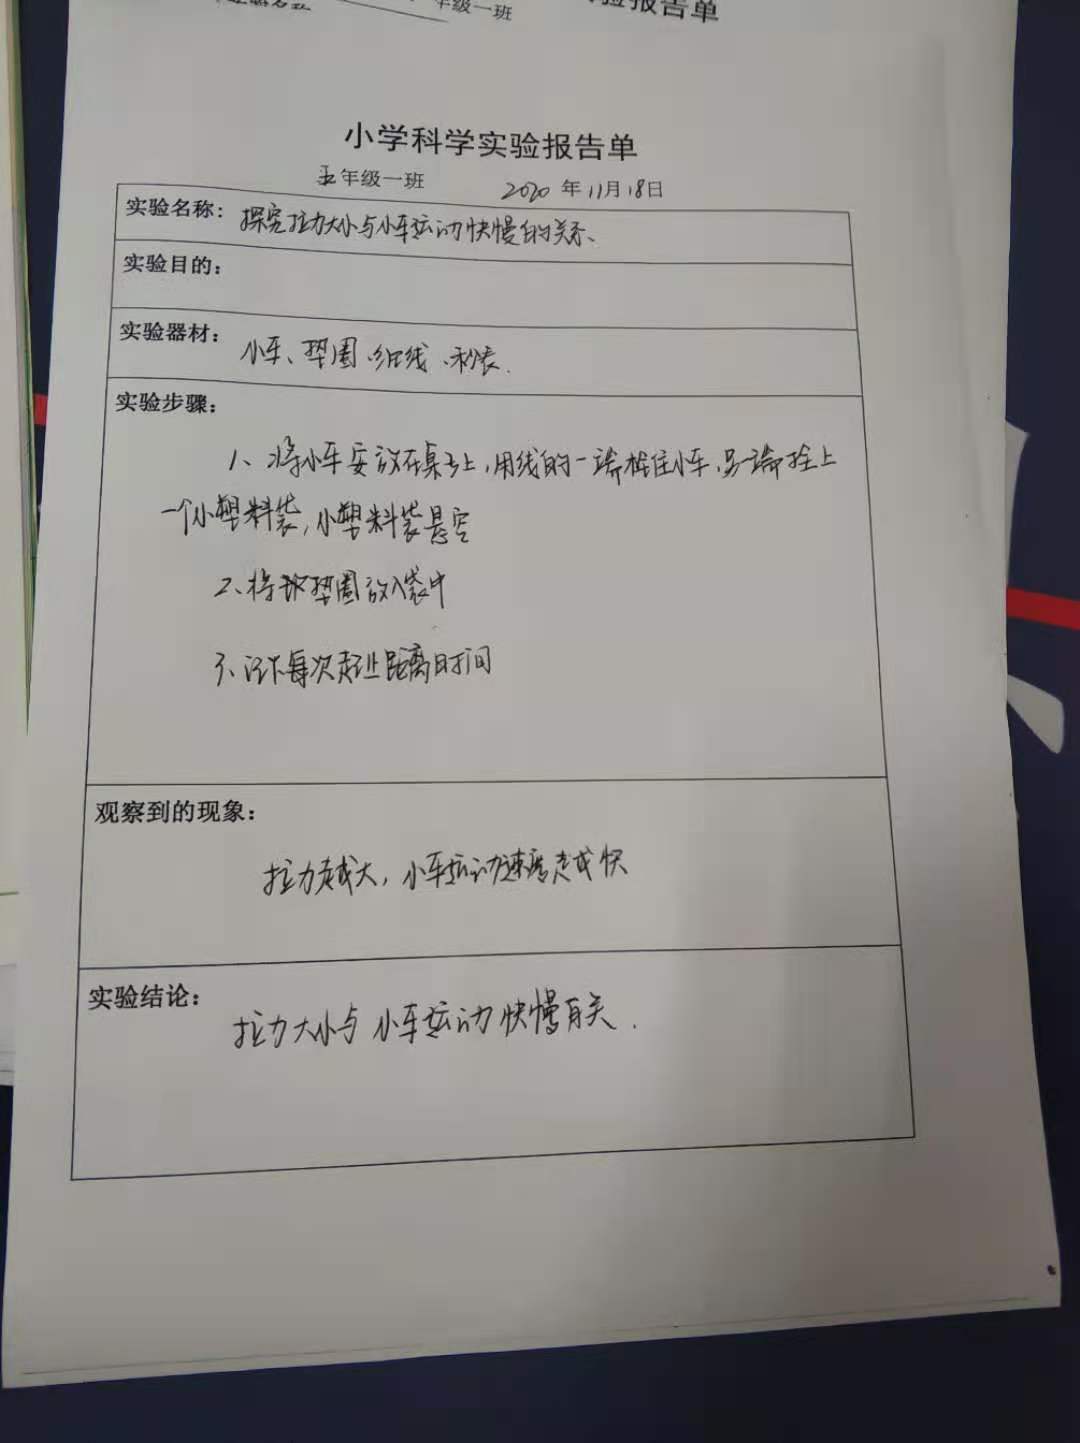 年级一班
验报告单
小学科学实验报告单
五年级一班 2020年11月18日
实验名称：探究拉力大小与小车运动快慢的关系、
实验目的：
实验器材：小车、垫圈、细线、秒表.
实验步骤：
1、将小车安放在桌子上，用线的一端栓住小车，另一端拴上
一个小塑料袋，小塑料袋悬空
2、将垫圈放入袋中
3、记下每次走过距离时间
观察到的现象：
拉力越大，小车运动速度越快
实验结论：
拉力大小与小车运动快慢有关.